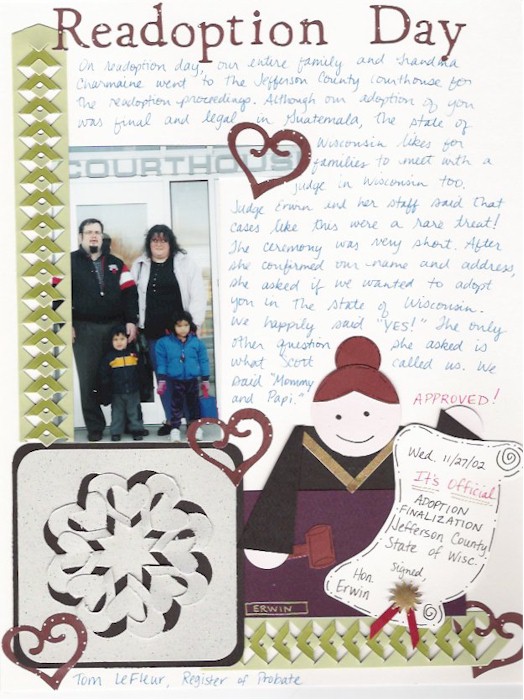 Readoption Day
On readoption day, our entire family and Grandma
Charmaine went to the Jefferson County Courthouse for
the readoption proceedings. Although our adoption of you
was final and legal in Guatemala, the state of
Wisconsin likes for
families to meet with a
judge in Wisconsin too.
Judge Erwin and her staff said that
cases like this were a rare treat!
The ceremony was very short. After
she confirmed our name and address,
she asked if we wanted to adopt
you in the state of Wisconsin.
We happily said "YES!" The only
other question she asked is
what Scott called us. We
said "Mommy
and Papi."
COURTHOUSE
APPROVED!
Wed. 11/27/02
It's Official
ADOPTION
FINALIZATION
Jefferson County
State of Wisc.
Signed
Hon.
Erwin
ERWIN
Tom LeFleur, Register of Probate